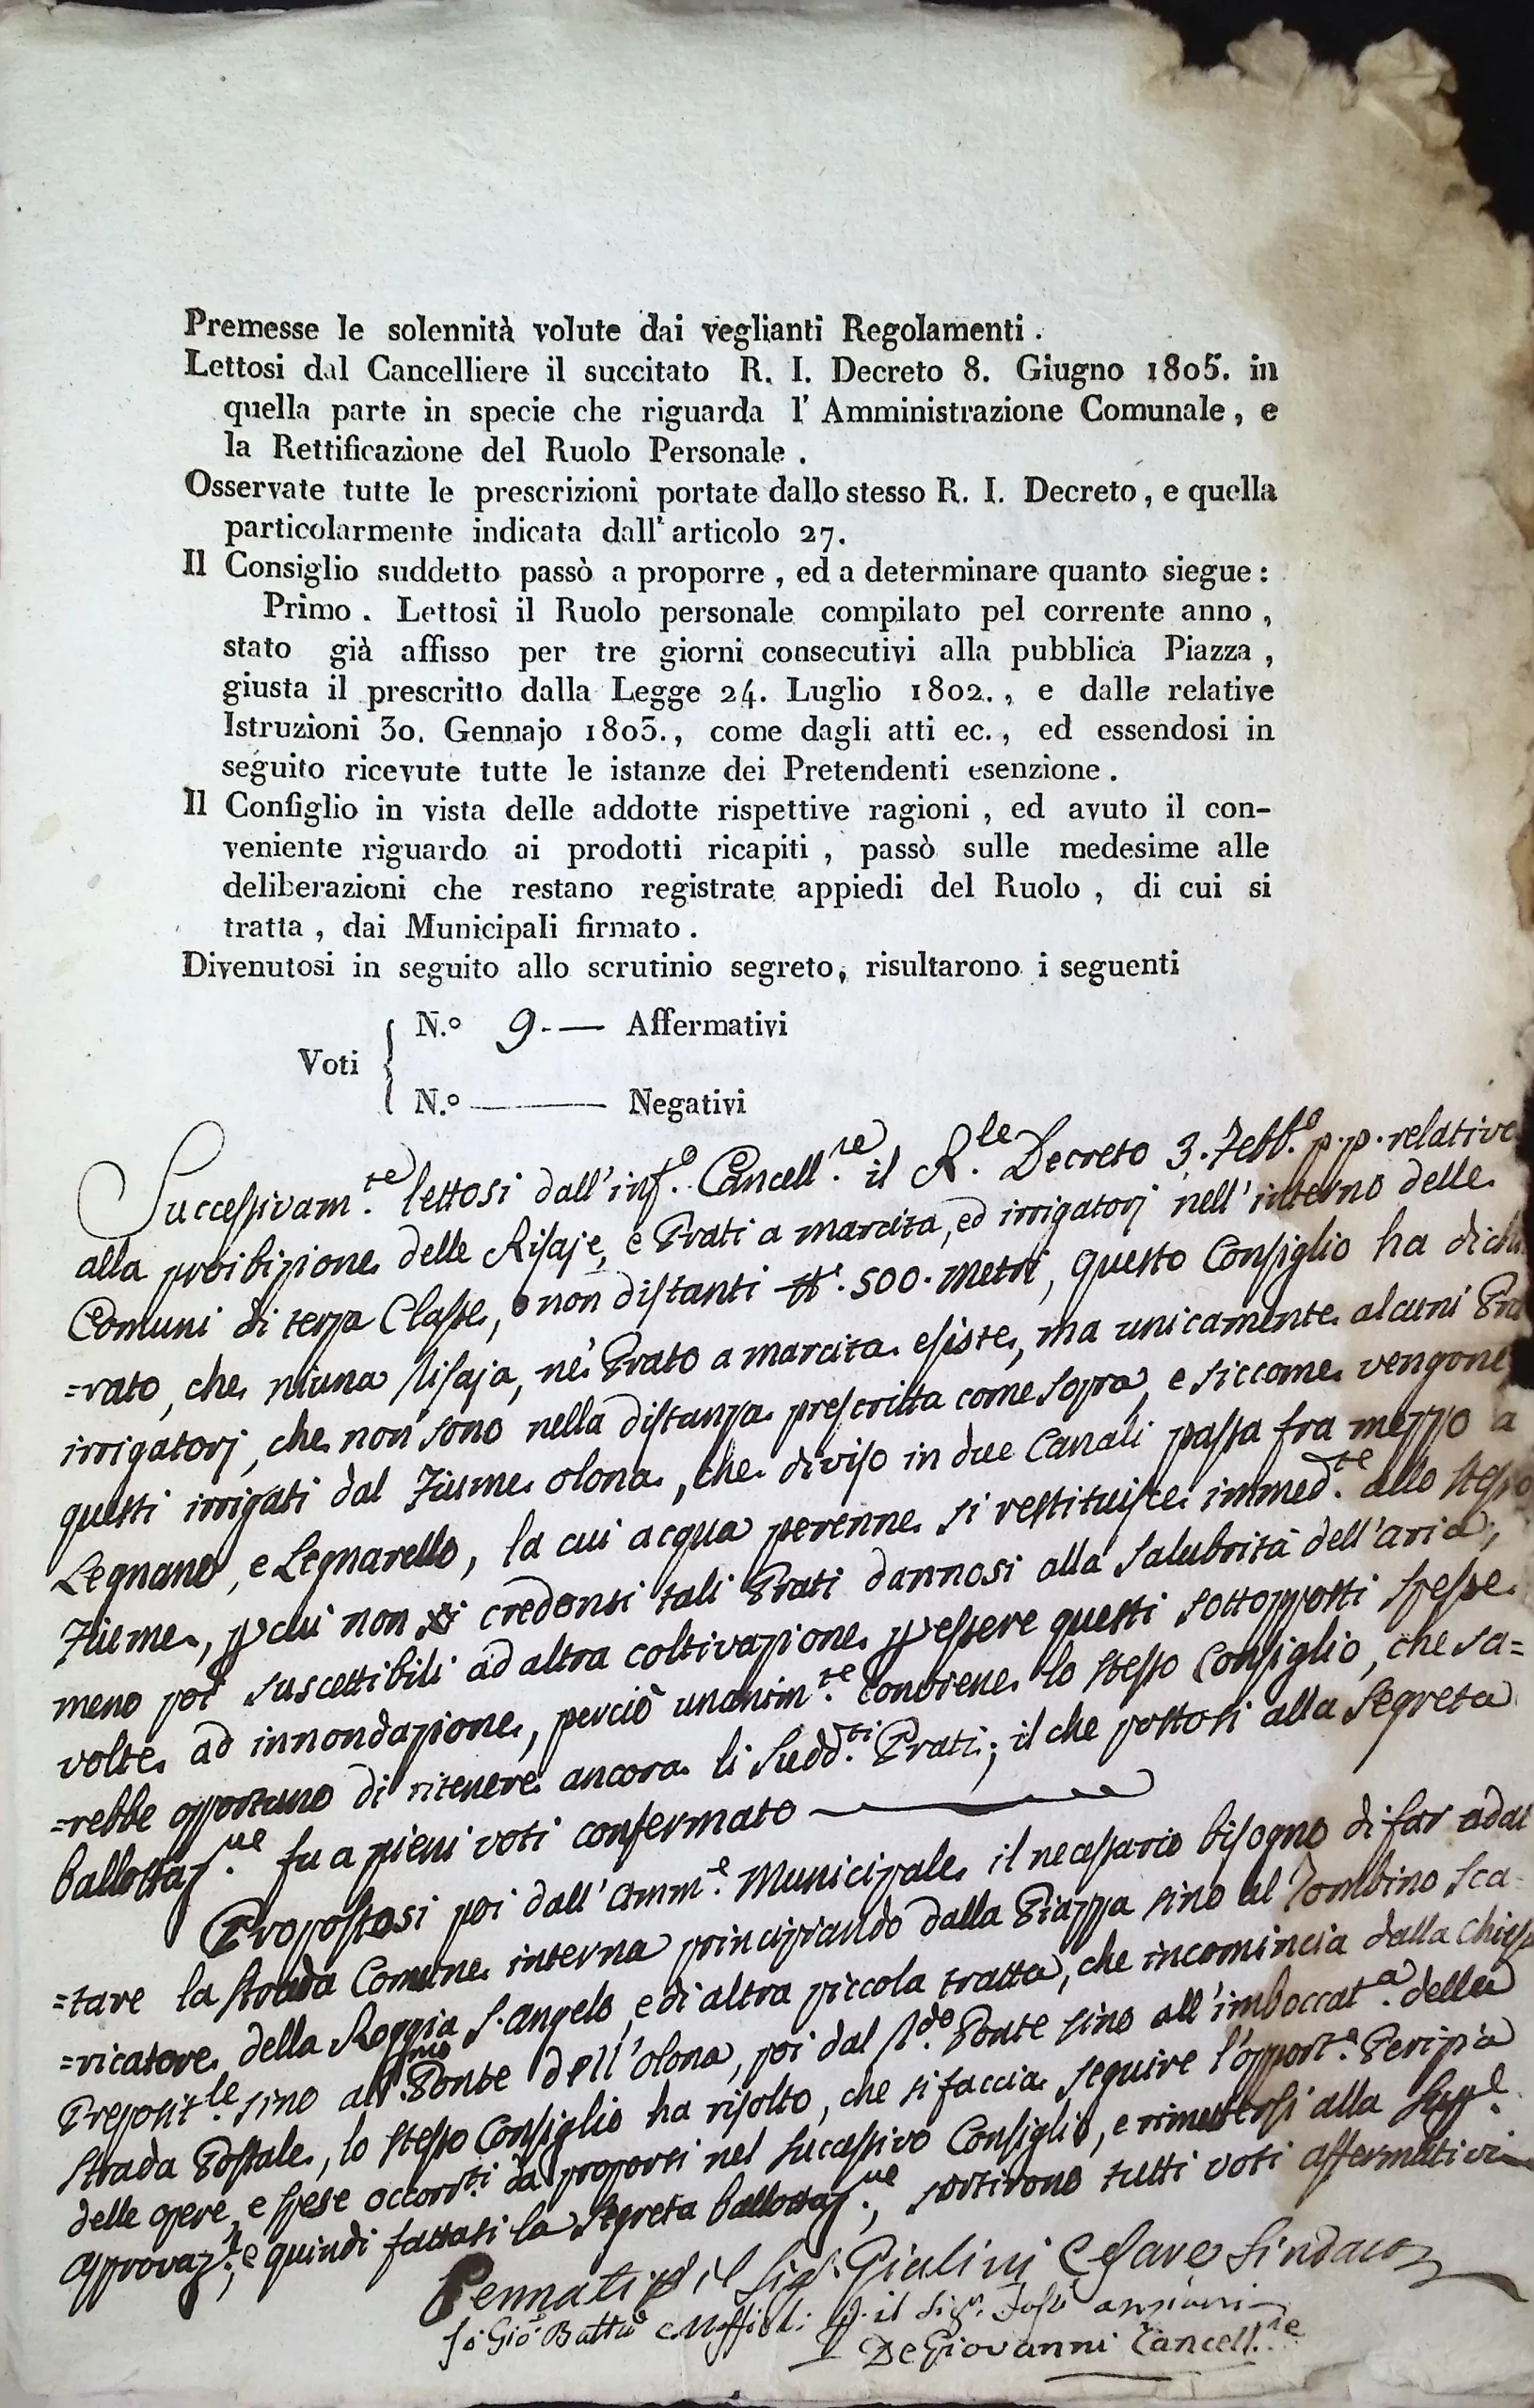 Premesse le solennità volute dai veglianti Regolamenti .
Lettosi dal Cancelliere il succitato R. I. Decreto 8. Giugno 1805. in
quella parte in specie che riguarda l' Amministrazione Comunale , e
la Rettificazione del Ruolo Personale .
Osservate tutte le prescrizioni portate dallo stesso R. I. Decreto , e quella
particolarmente indicata dall' articolo 27.
Il Consiglio suddetto passò a proporre , ed a determinare quanto siegue :
Primo . Lettosi il Ruolo personale compilato pel corrente anno ,
stato già affisso per tre giorni consecutivi alla pubblica Piazza ,
giusta il prescritto dalla Legge 24. Luglio 1802. , e dalle relative
Istruzioni 30. Gennajo 1805. , come dagli atti ec. , ed essendosi in
seguito ricevute tutte le istanze dei Pretendenti esenzione .
Il Configlio in vista delle addotte rispettive ragioni , ed avuto il con-
veniente riguardo ai prodotti ricapiti , passò sulle medesime alle
deliberazioni che restano registrate appiedi del Ruolo , di cui si
tratta , dai Municipali firmato .
Divenutosi in seguito allo scrutinio segreto , risultarono i seguenti
N.º 9.— Affermativi
Voti
N.º ——— Negativi
Successivam.te lettosi dall'inf.o Cancell.re il R.le Decreto 3. Febb.o p.p. relativo
alla proibizione delle Risaje, e Prati a marcita, ed irrigatorj nell'interno delle
Comuni di terza Classe, o non distanti 500. metri, questo Consiglio ha dichia
=rato, che niuna Risaja, nè Prato a marcita esiste, ma unicamente alcuni Pra
irrigatorj, che non sono nella distanza prescritta come sopra, e siccome vengono
questi irrigati dal Fiume olona, che diviso in due Canali passa fra mezzo a
Legnano, e Legnarello, la cui acqua perenne si restituisce immed.te allo stesso
Fiume, p cui non si credonsi tali Prati dannosi alla salubrità dell'aria,
meno poi suscettibili ad altra coltivazione p essere questi sottoposti spesse
volte ad innondazione, perciò unanim.te conviene lo stesso Consiglio, che sa=
=rebbe opportuno di ritenere ancora li sudd.ti Prati; il che postosi alla segreta
ballottaz.ne fu a pieni voti confermato
Propostosi poi dall'Amm.e Municipale il necessario bisogno di far adat
=tare la strada Comune interna principiando dalla Piazza sino al Tombino sca=
=ricatore della Roggia S. Angelo, e di altra piccola tratta, che incomincia dalla Chiesa
Preposit.le sino al p.mo Ponte dell'olona, poi dal s.do Ponte sino all'imboccat.a della
strada Postale, lo stesso Consiglio ha risolto, che si faccia seguire l'opport.a Perizia
delle opere, e spese occorr.ti da proporsi nel successivo Consiglio, e rimettersi alla Sup.e
approvaz.e; e quindi fattasi la segreta ballottaz.ne, sortirono tutti voti affermativi
Pennati p il Sig.r Giulini Cesare Sindaco
Gio Batta p. il Sig.r anziani
DeGiovanni Cancell.re